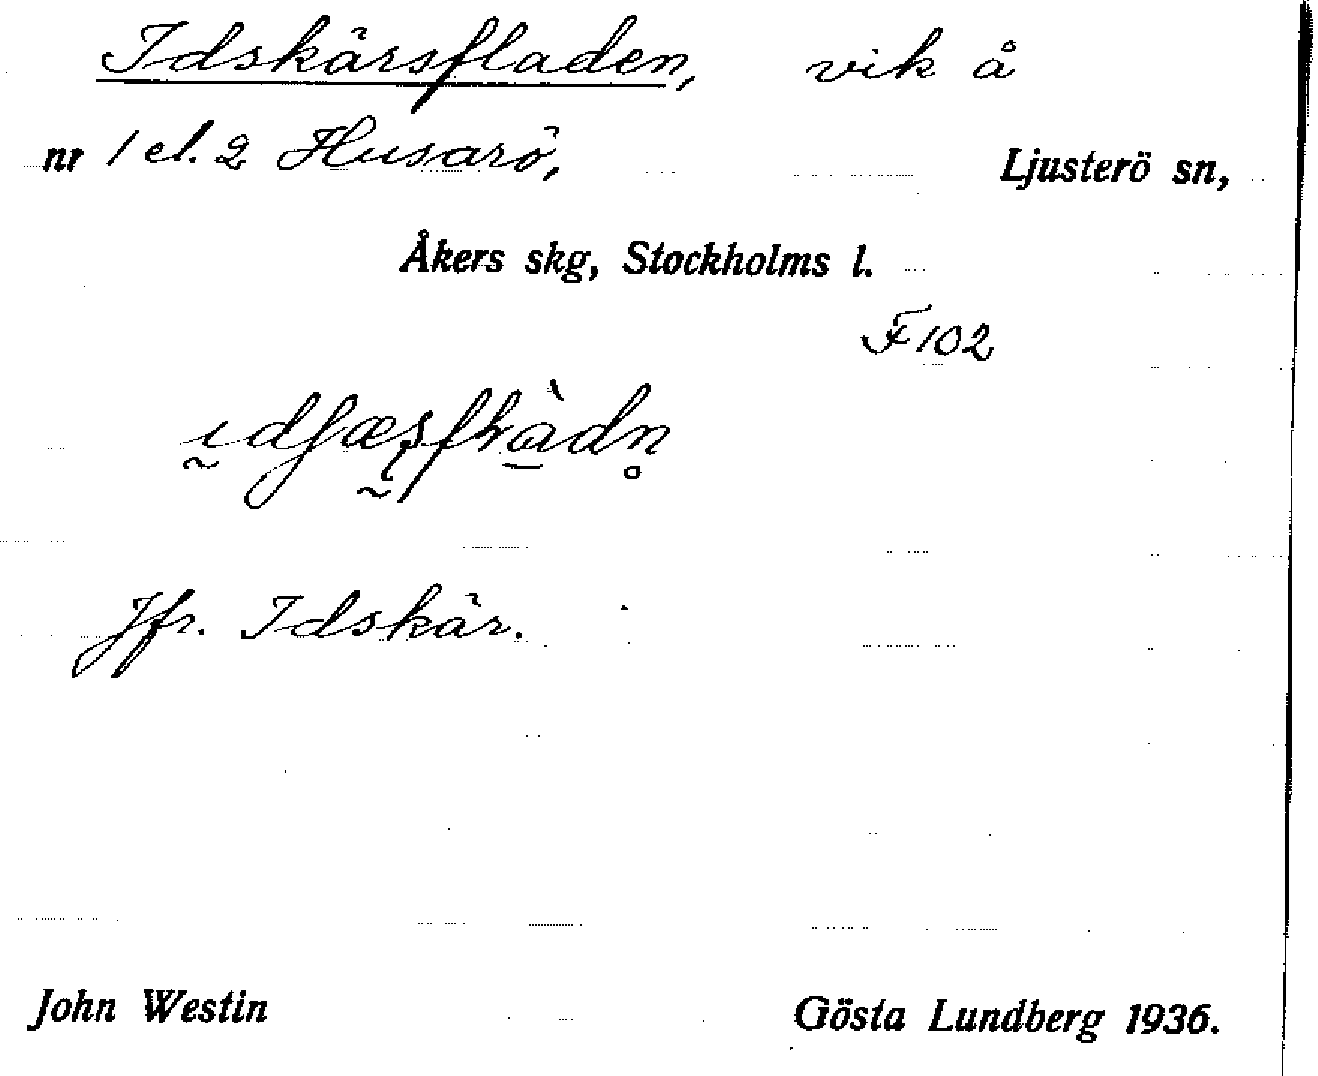 Idskärsfladen, vik å
nr 1 el. 2 Husarö, Ljusterö sn,
Åkers skg, Stockholms l.
F 102
Jfr. Idskär.
John Westin Gösta Lundberg 1936.